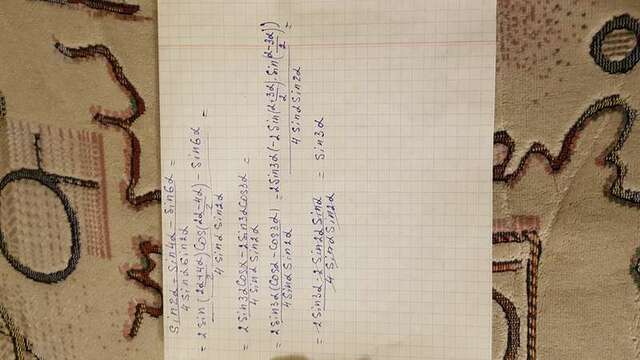 Sin2α - Sin4α - Sin6α =
4 Sinα Sin2α
= 2 Sin (2α+4α)/2 Cos (2α-4α)/2 - Sin6α =
4 Sinα Sin2α
= 2 Sin3α Cosα - 2 Sin3α Cos3α =
4 Sinα Sin2α
= 2 Sin3α (Cosα - Cos3α) = 2 Sin3α (-2 Sin(α+3α)/2 · Sin(α-3α)/2) =
4 Sinα Sin2α 4 Sinα Sin2α
= 2 Sin3α · 2 Sin2α Sinα = Sin3α
4 Sinα Sin2α